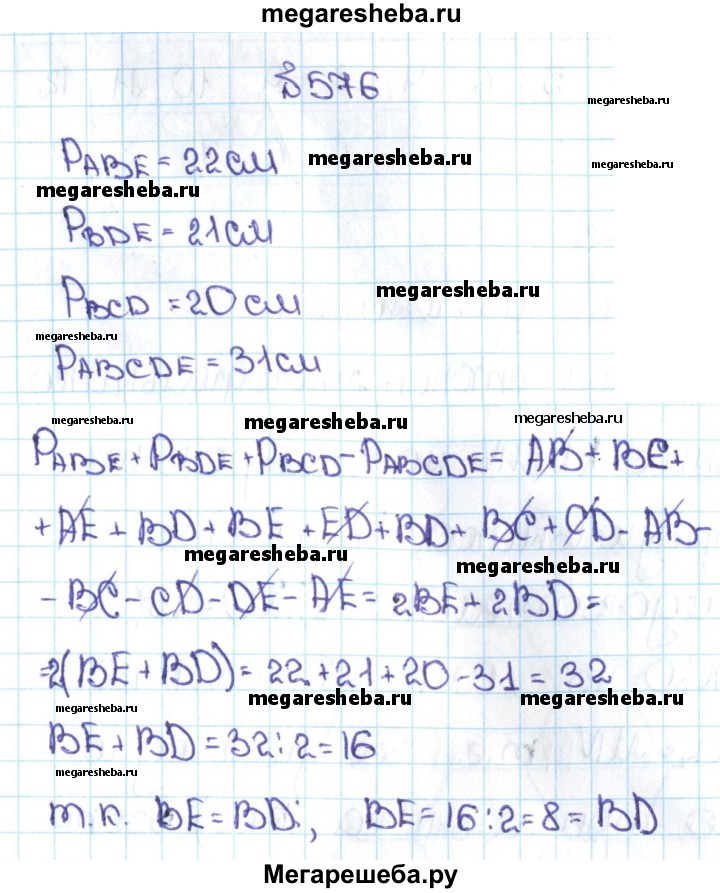 megaresheba.ru
№576
megaresheba.ru
P_ABE = 22см megaresheba.ru megaresheba.ru
megaresheba.ru
P_BDE = 21см
P_BCD = 20см megaresheba.ru
megaresheba.ru
P_ABCDE = 31см
megaresheba.ru megaresheba.ru megaresheba.ru
P_ABE + P_BDE + P_BCD - P_ABCDE = AB + BE +
+ AE + BD + BE + ED + BD + BC + CD - AB -
megaresheba.ru megaresheba.ru
- BC - CD - DE - AE = 2BE + 2BD =
=2(BE + BD) = 22 + 21 + 20 - 31 = 32
megaresheba.ru megaresheba.ru megaresheba.ru
BE + BD = 32 : 2 = 16
megaresheba.ru
т.к. BE = BD, BE = 16 : 2 = 8 = BD
Мегарешеба.ру